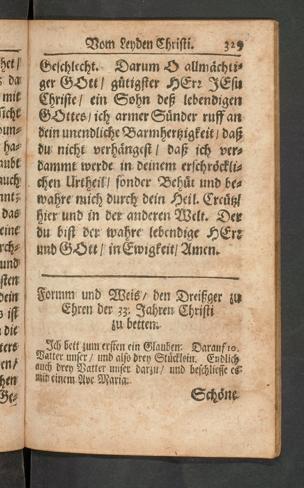 Vom Leyden Christi. 329
Geschlecht. Darum O allmächti-
ger GOtt / gütigster HErr JESu
Christe / ein Sohn deß lebendigen
GOttes / ich armer Sünder ruff an
dein unendliche Barmhertzigkeit / daß
du nicht verhängest / daß ich ver-
dammt werde in deinem erschröckli-
chen Urtheil / sonder Behüt und be-
wahre mich durch dein Heil. Creütz
hier und in der anderen Welt. Der
du bist der wahre lebendige HErr
und GOtt / in Ewigkeit / Amen.
Formm und Weis / den Dreißger zu
Ehren der 33. Jahren Christi
zu betten.
Ich bett zum ersten ein Glauben: Darauf 10.
Vatter unser / und also drey Stücklein. Endlich
auch drey Vatter unser darzu / und beschliesse es
mit einem Ave Maria.
Schöne